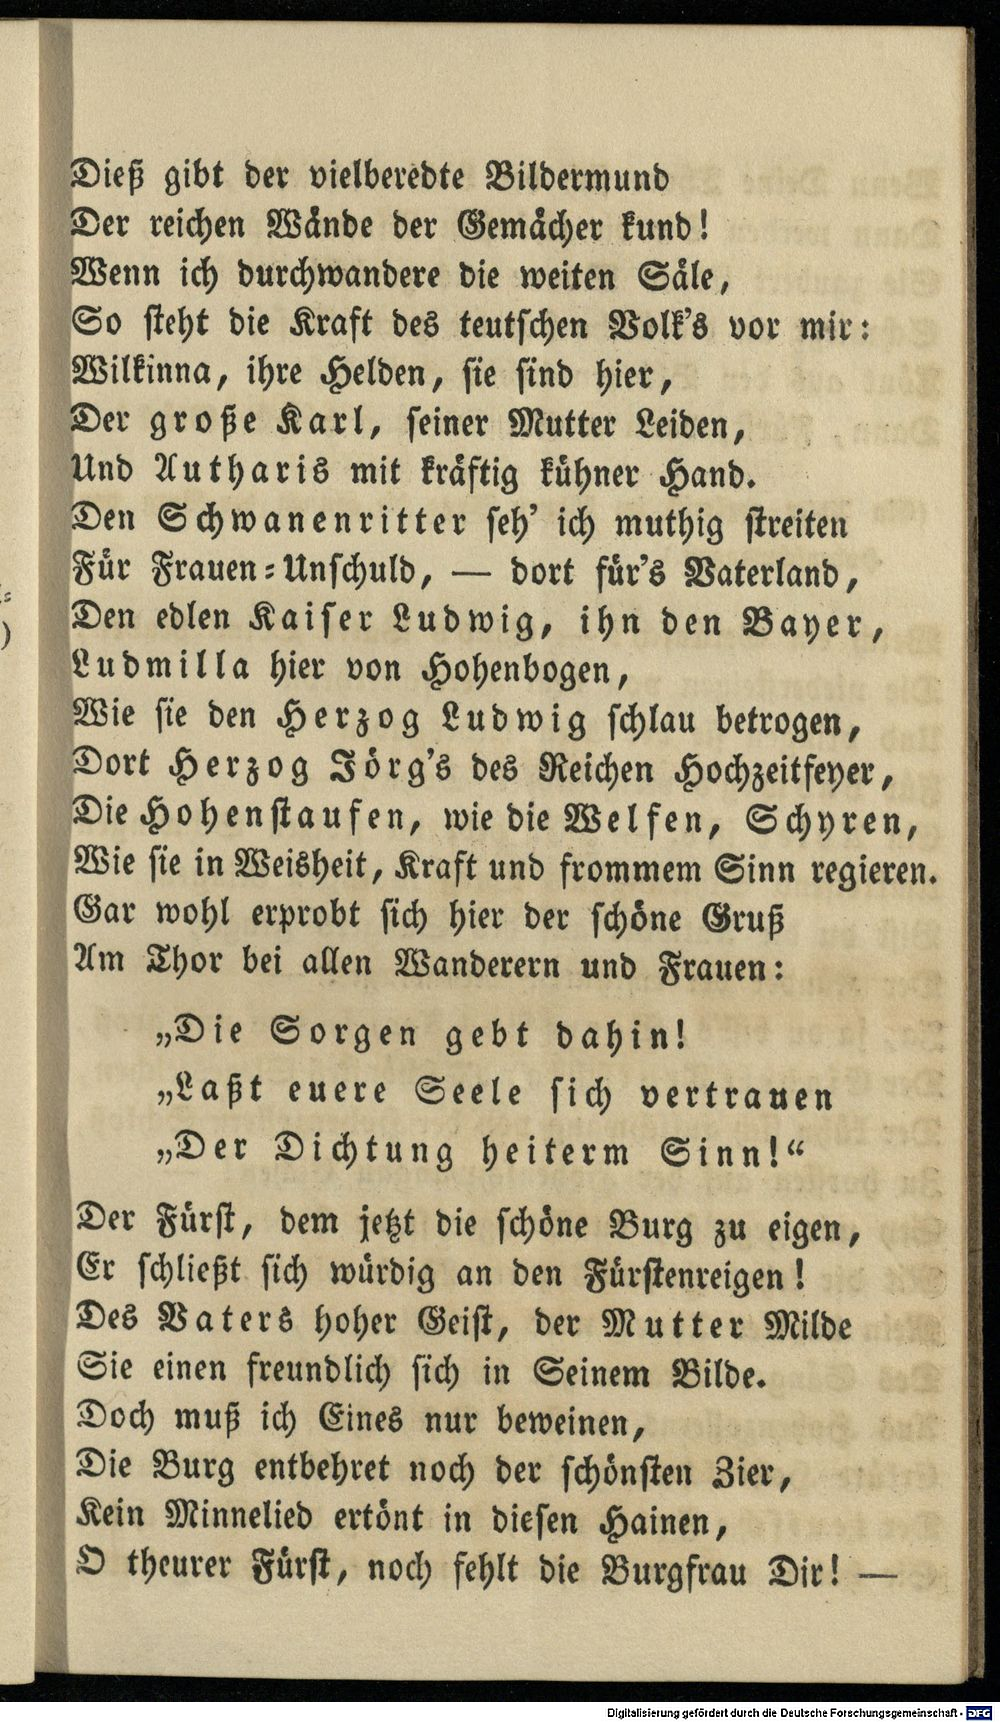 Dieß gibt der vielberedte Bildermund
Der reichen Wände der Gemächer kund!
Wenn ich durchwandere die weiten Säle,
So steht die Kraft des teutschen Volk's vor mir:
Wilkinna, ihre Helden, sie sind hier,
Der große Karl, seiner Mutter Leiden,
Und Autharis mit kräftig kühner Hand.
Den Schwanenritter seh' ich muthig streiten
Für Frauen-Unschuld, — dort für's Vaterland,
Den edlen Kaiser Ludwig, ihn den Bayer,
Ludmilla hier von Hohenbogen,
Wie sie den Herzog Ludwig schlau betrogen,
Dort Herzog Jörg's des Reichen Hochzeitfeyer,
Die Hohenstaufen, wie die Welfen, Schyren,
Wie sie in Weisheit, Kraft und frommem Sinn regieren.
Gar wohl erprobt sich hier der schöne Gruß
Am Thor bei allen Wanderern und Frauen:
„Die Sorgen gebt dahin!
„Laßt euere Seele sich vertrauen
„Der Dichtung heiterm Sinn!“
Der Fürst, dem jetzt die schöne Burg zu eigen,
Er schließt sich würdig an den Fürstenreigen!
Des Vaters hoher Geist, der Mutter Milde
Sie einen freundlich sich in Seinem Bilde.
Doch muß ich Eines nur beweinen,
Die Burg entbehret noch der schönsten Zier,
Kein Minnelied ertönt in diesen Hainen,
O theurer Fürst, noch fehlt die Burgfrau Dir! —
Digitalisierung gefördert durch die Deutsche Forschungsgemeinschaft - DFG